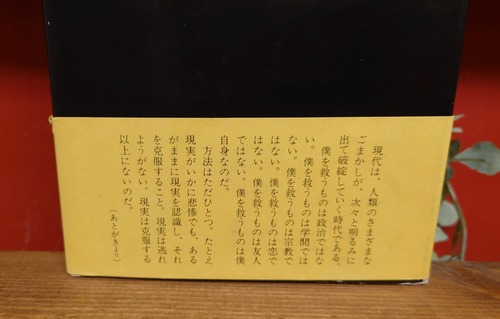 現代は、人類のさまざまな
ごまかしが、次々と明るみに
出て破綻していく時代である。
僕を救うものは政治ではな
い。僕を救うものは学問では
ない。僕を救うものは宗教で
はない。僕を救うものは恋で
はない。僕を救うものは友人
ではない。僕を救うものは僕
自身なのだ。
方法はただひとつ。たとえ
現実がいかに悲惨でも、ある
がままに現実を認識し、それ
を克服すること。現実は逃れ
ようがない。現実は克服する
以上にないのだ。
(あとがきより)